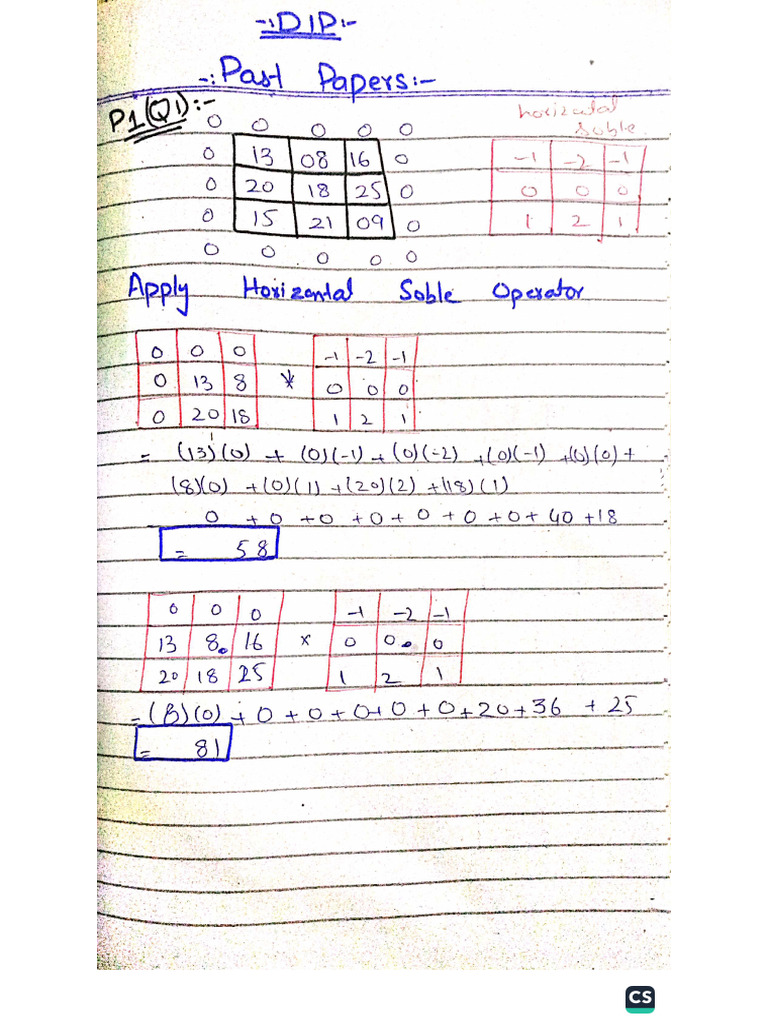 -:DIP:-
-: Past Papers:-
P1(Q1):-
horizontal
soble
0 0 0 0 0
0 13 08 16 0
0 20 18 25 0
0 15 21 09 0
0 0 0 0 0
-1 -2 -1
0 0 0
1 2 1
Apply Horizontal Soble Operator
0 0 0
0 13 8
0 20 18
*
-1 -2 -1
0 0 0
1 2 1
= (13)(0) + (0)(-1) + (0)(-2) + (0)(-1) + (0)(0) +
(8)(0) + (0)(1) + (20)(2) + (18)(1)
0 + 0 + 0 + 0 + 0 + 0 + 0 + 40 + 18
= 58
0 0 0
13 8 16
20 18 25
x
-1 -2 -1
0 0 0
1 2 1
= (8)(0) + 0 + 0 + 0 + 0 + 0 + 20 + 36 + 25
= 81
CS